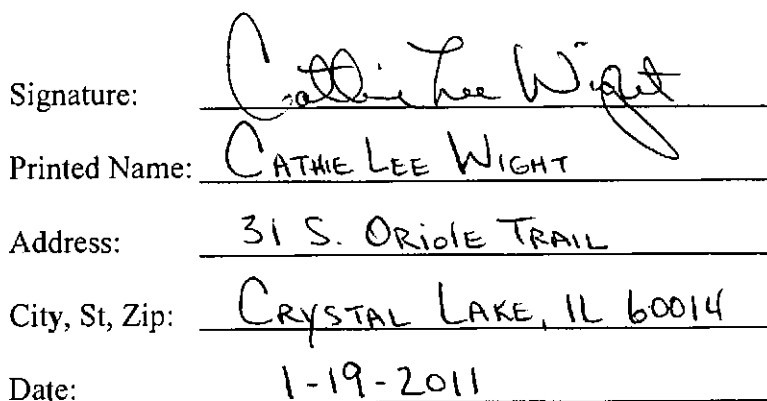 Signature: Cathie Lee Wight
Printed Name: CATHIE LEE WIGHT
Address: 31 S. ORIOLE TRAIL
City, St, Zip: CRYSTAL LAKE, IL 60014
Date: 1-19-2011